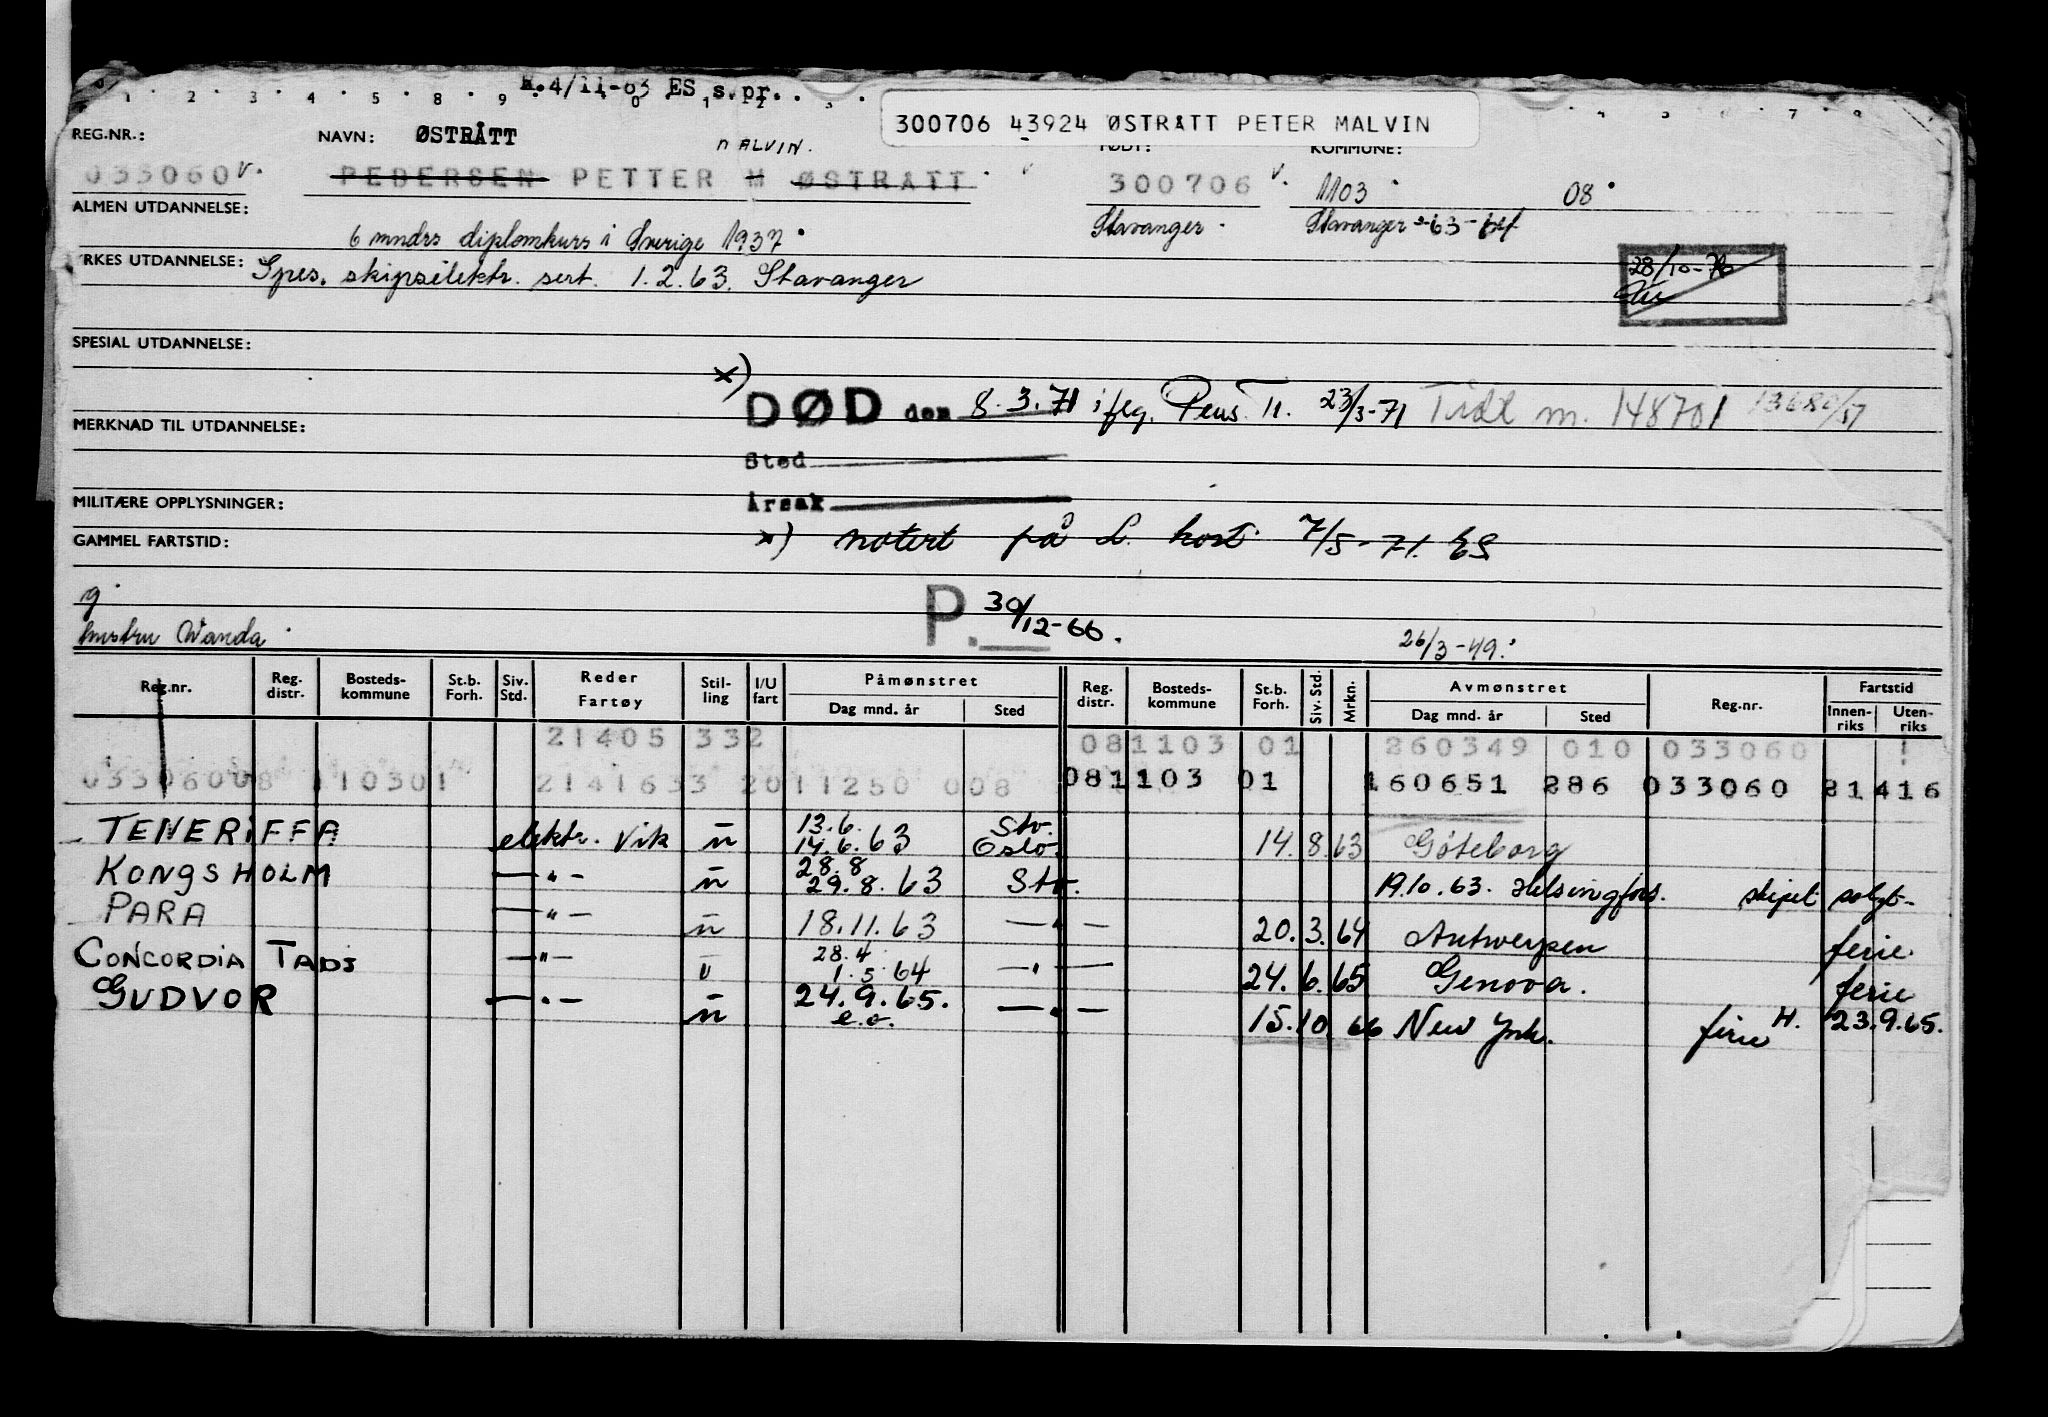 M.4/11-63 ES s.pr.
300706 43924 ØSTRÅTT PETER MALVIN
REG.NR.: NAVN: ØSTRÅTT MALVIN. FØDT: KOMMUNE:
033060 v. PEDERSEN PETTER M ØSTRÅTT 300706 v. 1103 08
ALMEN UTDANNELSE: 6 mndrs diplomkurs i Sverige 1937 Stavanger Stavanger
YRKES UTDANNELSE: Spes. skipselektr. sert. 1.2.63. Stavanger 28/10-76
SPESIAL UTDANNELSE:
x)
DØD den 8.3.71 ifлg. Pens. Tr. 23/3-71 Tidl m. 148701 13680/57
MERKNAD TIL UTDANNELSE:
Sted
MILITÆRE OPPLYSNINGER: Årsak
GAMMEL FARTSTID: x) notert på L. kort 7/5-71. ES
g
P. 30/12-66.
hustru Wanda 26/3-49.
Reg.nr. Reg. distr. Bosteds-kommune St.b. Forh. Siv. Std. Reder Fartøy Stil-ling I/U fart Påmønstret Dag mnd. år Sted Reg. distr. Bosteds-kommune St.b. Forh. Siv. Std. Mrkn. Avmønstret Dag mnd. år Sted Reg.nr. Fartstid Innen-riks Uten-riks
21405 332 081103 01 260349 010 033060
03306008 110301 2141633 2011250 008 081103 01 160651 286 033060 21416
TENERIFFA elektr. Vik u 13.6. 14.6.63 Stv. Oslo. 14.8.63 Göteborg
KONGSHOLM — " — u 28.8 29.8.63 Stv. 19.10.63. Helsingfors. skipet solgt-
PARA — " — u 18.11.63 — " — 20.3.64 Antwerpen ferie
CONCORDIA TADJ — " — u 28.4 1.5.64 — " — 24.6.65 Genova. ferie
GUDVOR — " — u 24.9.65. e.o. — " — 15.10.66 New York. ferie H. 23.9.65.